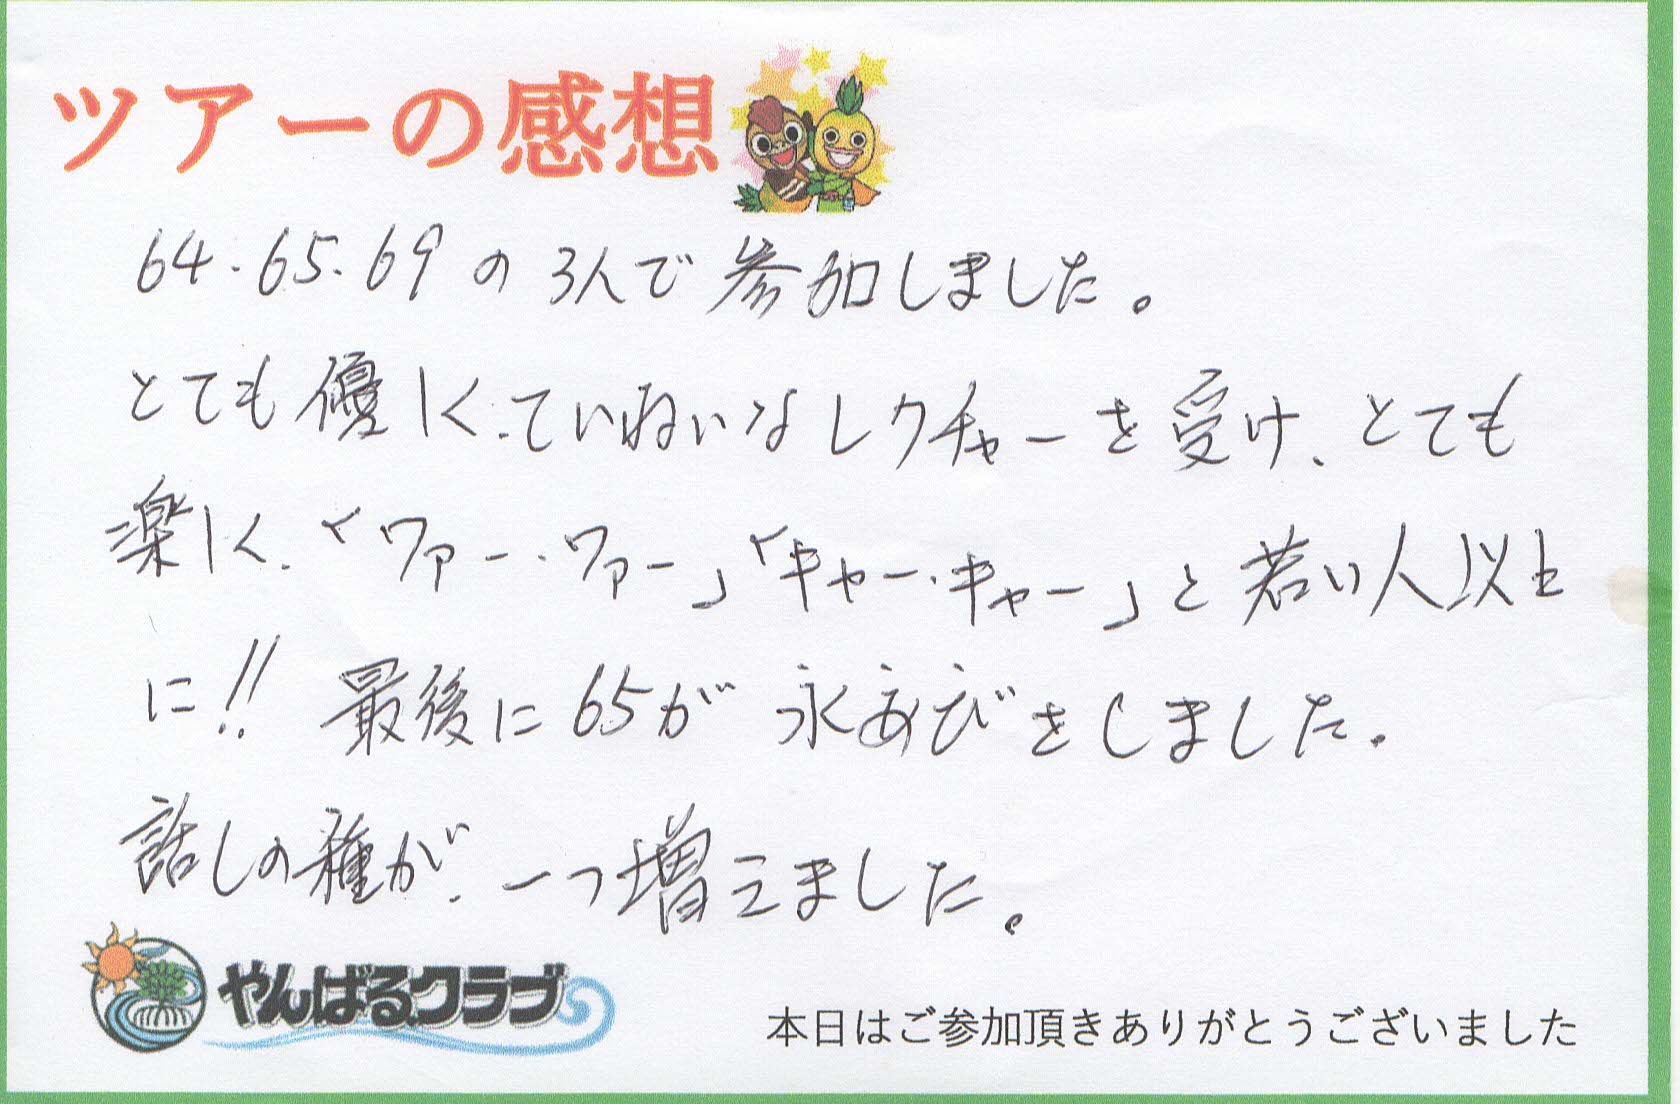 ツアーの感想
64.65.69の3人で参加しました。
とても優しく、ていねいなレクチャーを受け、とても
楽しく、「ワァー・ワァー」「キャー・キャー」と若い人以上
に!! 最後に65が水あびをしました。
話しの種が、一つ増えました。
やんばるクラブ
本日はご参加頂きありがとうございました